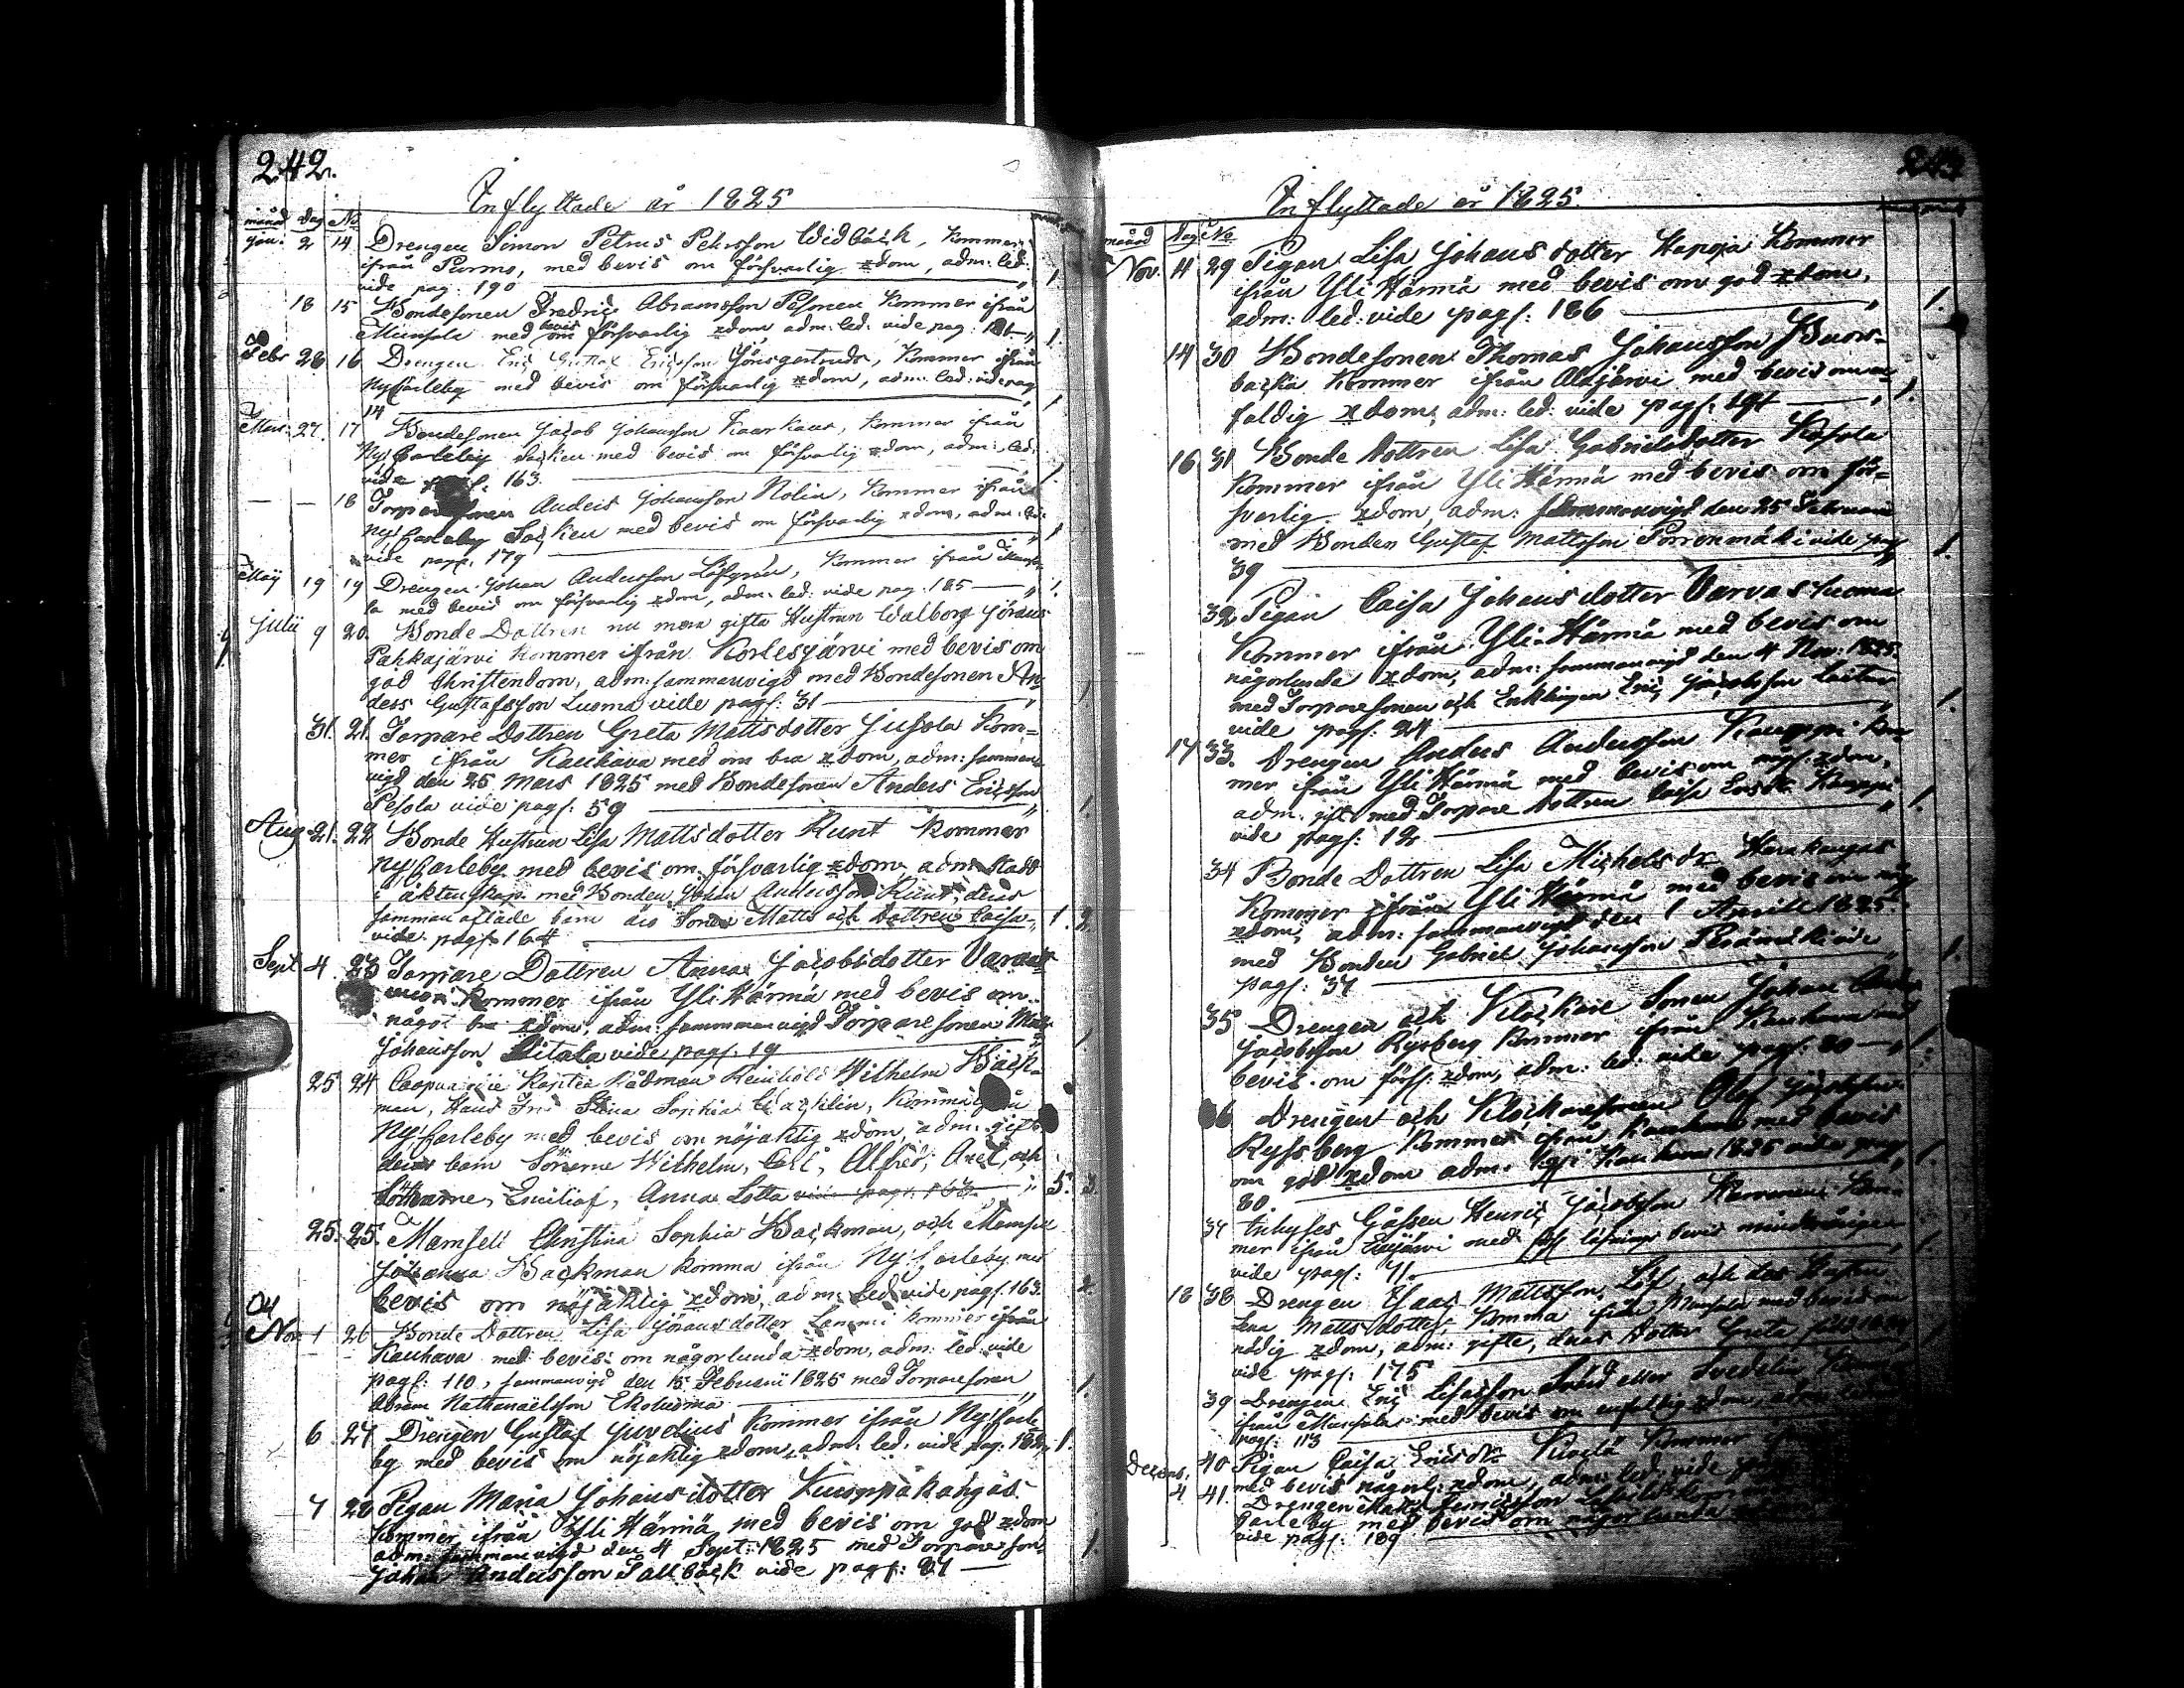 242.
Inflyttade år 1825
månad Dag No
Jan: 2 14 Drengen Simon Petrus Pehrsson Widbäck, Kommer
ifrån Purmo, med bevis om försvarlig xdom, adm: led:
vide pag: 190 " 1.
18 15 Bondesonen Fredric Abramsson Pesonen Kommer ifrån
Munsala med bevis om försvarlig xdom adm: led: vide pag: " 1
Febr 28 16 Drengen Eric Gustaf Ericsson Jönsgertruds, Kommer ifrån
NyCarleby med bevis om försvarlig xdom, adm: led: vide pag
14 " 1
Mars: 27. 17 Bondesonen Jacob Johansson Kaarkaus, Kommer ifrån
Ny Carleby Socken med bevis om försvarlig xdom, adm: led:
vide pag: 163. 1.
— — 18 Torparesonen Anders Johansson Nolin, Kommer ifrån
NyCarleby Socken med bevis om försvarlig xdom, adm: led:
vide pagf. 179 1
Maij 19 19 Drengen Johan Andersson Löfgren, Kommer ifrån Munsa-
la med bevis om försvarlig xdom, adm: led: vide pag: 185 — " 1.
Julii 9 20. Bonde Dottren nu mera gifta Hustrun Walborg Jörans
Pahkajärvi Kommer ifrån Kortesjärvi med bevis om
god Christendom, adm: sammanvigd med Bondesonen An-
ders Gustafsson Luoma vide pagf: 31 " 1
31. 21. Torpare Dottren Greta Mattsdotter Jussola Kom-
mer ifrån Kauhava med om bra xdom, adm: samman-
vigd den 25 Mars 1825 med Bondesonen Anders Ericsson
Pesola vide pagf: 59 " 1.
Aug 21. 22 Bonde Hustrun Lisa Mattsdotter Kunt Kommer
NyCarleby med bevis om försvarlig xdom, adm: stadd
i äktenskap med Bonden Johan Andersson Kunt, deras
samman aflade barn äro Sonen Matts och Dottren Caisa " 1. 2.
vide pagf: 164
Sept 4. 23 Torpare Dottren Anna Jacobsdotter
Kommer ifrån Yli Härmä med bevis om
något bra xdom, adm: sammanvigd Torparesonen Matts
Johansson vide pagf. 19 1
25 24 Rådman Reinhold Wilhelm Back-
man, Hans Fru Stina Sophia Komma ifrån
NyCarleby med bevis om nöjaktig xdom, adm: gifta
deras barn Sönerne Wilhelm, Carl, Alfred, Axel, och
Döttrarne, Emilia, Anna Lotta vide pagf. 163. " 5. 3
25. 25. Mamsell Christina Sophia Backman, och Mamsell
Johanna Backman komma ifrån NyCarleby med
bevis om nöjaktig xdom, adm: led: vide pagf. 163. 2
Nov: 1 26 Bonde Dottren Lisa Jöransdotter Lammi Kommer ifrån
Kauhava med bevis om någorlunda xdom, adm: led: vide
pagf: 110, sammanvigd den 15 Februarii 1825 med Torparesonen
Abram Nathanaelsson Ekoluoma " 1.
6 27 Drengen Gustaf Juvelius Kommer ifrån NyCarle-
by med bevis om nöjaktig xdom, adm: led: vide pag: " 1.
7 28 Pigan Maria Johansdotter Kuoppakangas
Kommer ifrån Yli Härmä med bevis om god xdom
adm: sammanvigd den 4 Sept: 1825 med Torpareson
Johan Andersson Tallbäck vide pagf: 87 — 1.
243
Inflyttade år 1825
månad Dag No
Nov. 11 29 Pigan Lisa Johansdotter Haapoja Kommer
ifrån Yli Härmä med bevis om god xdom,
adm: led: vide pagf: 186 " 1.
14 30 Bondesonen Thomas Johansson
backa Kommer ifrån Alajärvi med bevis om en-
faldig xdom, adm: led: vide pagf: 191 — " 1.
16 31 Bonde Dottren Lisa Gabrielsdotter Kosola
Kommer ifrån Yli Härmä med bevis om för-
svarlig xdom, adm: sammanvigd den 25 Februarii
med Bonden Gustaf Mattsson Porrenmäki vide pag 1.
39
32 Pigan Caisa Johansdotter Varvasluoma
Kommer ifrån Yli-Härmä med bevis om
någorlunda xdom, adm: sammanvigd den 4 Nov: 1825.
med Torparesonen och Enklingen Eric Jacobsson
vide pagf: 24 " 1.
17 33. Drengen Anders Andersson Kauppi Kom-
mer ifrån Yli Härmä med bevis om xdom,
adm. gift med Torpare Dottren Caisa Ersdr Kauppi
vide pagf: 12 " 1.
34 Bonde Dottren Lisa Michelsdr Herakangas
Kommer ifrån Yli Härmä med bevis om någ
xdom, adm: sammanvigd den 1 Aprill 1825
med Bonden Gabriel Johansson vide
pagf: 37 " 1.
35 Drengen och Klockare Sonen Johan
Jacobsson Rysberg Kommer ifrån Kauhava med
bevis om förs: xdom, adm: led: vide pagf: 80 — " 1.
36 Drengen och Klockaresonen Olof Jacobsson
Rysberg Kommer ifrån Kauhava med bevis
om god xdom adm: Kauhava 1825 vide pag
80. 1.
37 Inhyses Gossen Henric Jacobsson Kom-
mer ifrån med läsnings bevis minderårig
vide pagf: 11. 1.
18 38 Drengen Isaac Mattsson Löf, och des Hustru
Lena Mattsdotter, Komma ifrån Munsala med bevis om
nödig xdom, adm: gifte, deras Dotter Greta
vide pagf: 175
39 Drengen Eric Kommer
ifrån Munsala med bevis om enfaldig xdom, adm: led
pagf: 113
Decemb. 40 Pigan Caisa Ericsdr Kommer
med bevis någorl: xdom, adm: led: vide
4 41. Drengen Matts
Carleby med bevis om någorlunda
vide pagf: 189